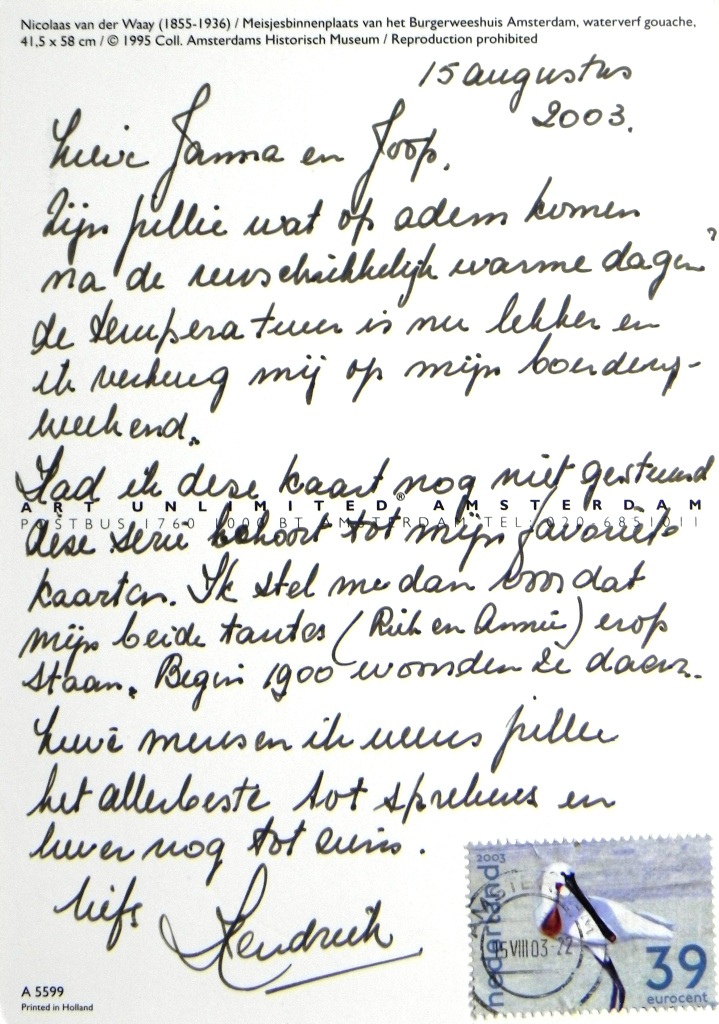 Nicolaas van der Waay (1855-1936) / Meisjesbinnenplaats van het Burgerweeshuis Amsterdam, waterverf gouache,
41,5 x 58 cm / © 1995 Coll. Amsterdams Historisch Museum / Reproduction prohibited
15 augustus
2003.
Lieve Janna en Joop,
Zijn jullie wat op adem komen
na de verschrikkelijk warme dagen?
de temperatuur is nu lekker en
ik verheug mij op mijn boerderij-
weekend.
Had ik deze kaart nog niet gestuurd
ART UNLIMITED® AMSTERDAM
POSTBUS 1760 1000 BT AMSTERDAM TEL: 020-6851011
deze serie behoort tot mijn favoriete
kaarten. Ik stel me dan voor dat
mijn beide tantes (Riek en Annie) erop
staan. Begin 1900 woonden ze daar.
Lieve mensen ik wens jullie
het allerbeste tot sprekens en
liever nog tot ziens.
liefs
Hendriek
2003
nederland
15 VIII 03-22
39
eurocent
A 5599
Printed in Holland